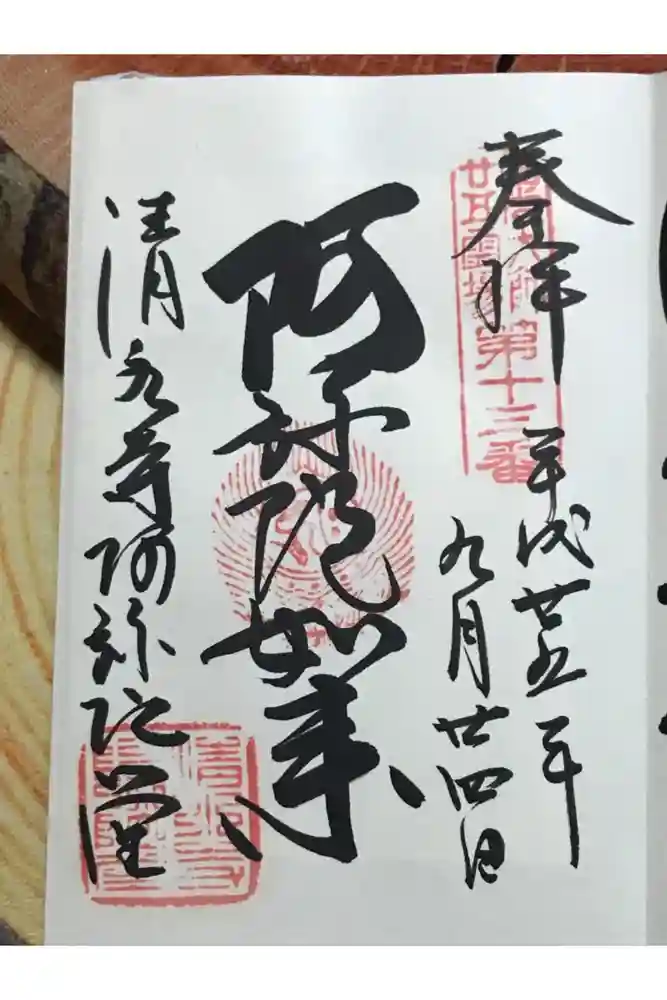 奉拝
圓光大師
廿五靈場
第十三番
平成廿五年
九月廿四日
阿弥陀如来
清水寺阿弥陀堂